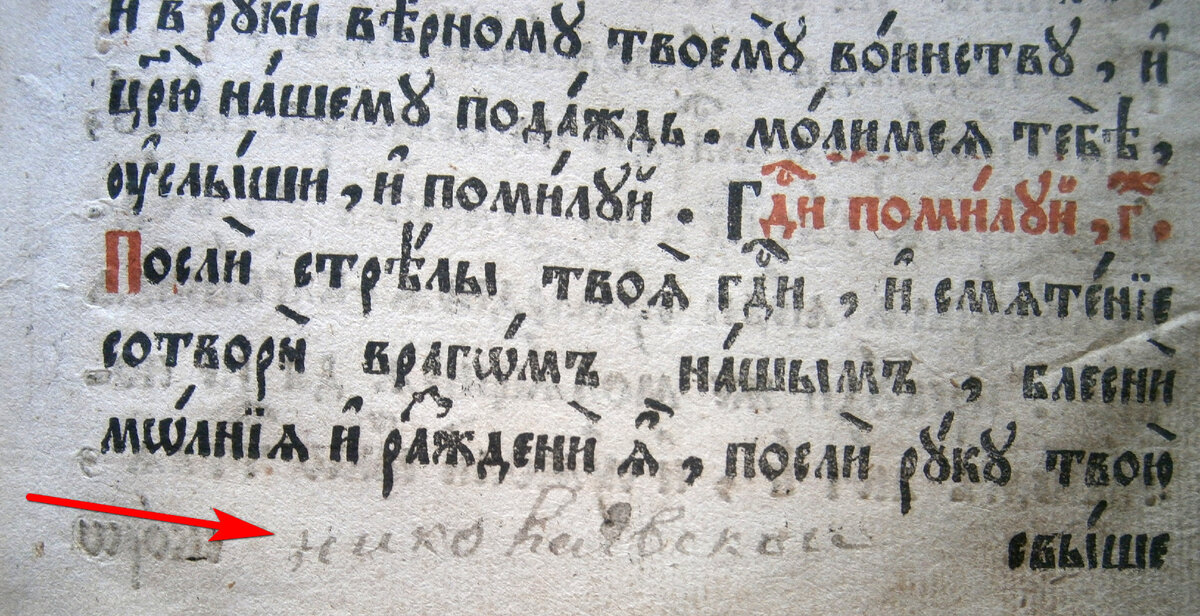 и҆ в рꙋки вѣ́рномꙋ твоемꙋ̀ во́инствꙋ, и҆
цр҃ю̀ на́шемꙋ пода́ждь. мо́лимсѧ тебѣ̀,
ᲂу҆слы́ши, и҆ поми́лꙋй. Гдⷭ҇и поми́лꙋй, г҃.
Послѝ стрѣ́лы твоѧ̀ гдⷭ҇и, и҆ смѧте́нїе
сотворѝ врагѡ́мъ на́шымъ, блеснѝ
мѡ́лнїѧ и҆ ражденѝ ѧ҆̀, послѝ рꙋ́кꙋ твою̀
свы́ше